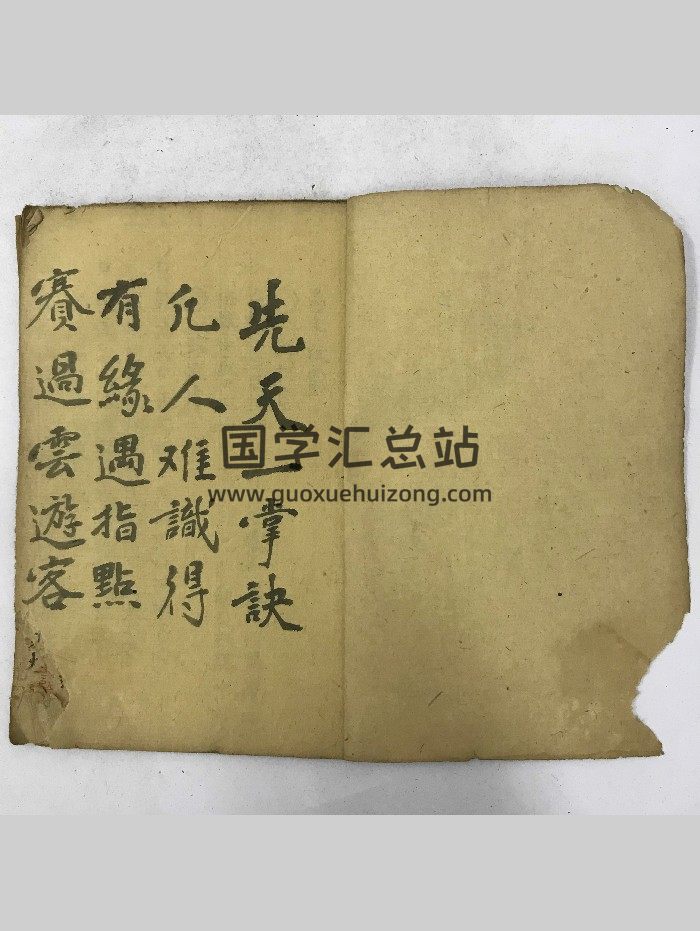 先天一掌訣
凢人难識得
有緣遇指點
賽過雲遊客
国学汇总站
www.guoxuehuizong.com